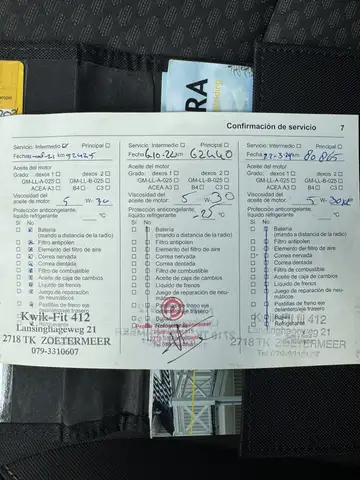 Confirmación de servicio 7
Servicio: Intermedio Principal
Fecha km
Aceite del motor
Grado: dexos 1 dexos 2
GM-LL-A-025 GM-LL-B-025
ACEA A3 B4 C3
Viscosidad del
aceite de motor: 5 W- 30
Protección anticongelante:
líquido refrigerante °C
Sí No
Batería
(mando a distancia de la radio)
Filtro antipolen
Elemento del filtro de aire
Correa nervada
Correa dentada
Filtro de combustible
Aceite de caja de cambios
Líquido de frenos
Juego de reparación de
neumáticos
Pastillas de freno eje
Kwik-Fit 412
Lansinghageweg 21
2718 TK ZOETERMEER
079-3310607
Servicio: Intermedio Principal
Fecha km 62440
Aceite del motor
Grado: dexos 1 dexos 2
GM-LL-A-025 GM-LL-B-025
ACEA A3 B4 C3
Viscosidad del
aceite de motor: 5 W- 30
Protección anticongelante:
líquido refrigerante °C
Sí No
Batería
(mando a distancia de la radio)
Filtro antipolen
Elemento del filtro de aire
Correa nervada
Correa dentada
Filtro de combustible
Aceite de caja de cambios
Líquido de frenos
Juego de reparación de
neumáticos
Servicio: Intermedio Principal
Fecha km 80865
Aceite del motor
Grado: dexos 1 dexos 2
GM-LL-A-025 GM-LL-B-025
ACEA A3 B4 C3
Viscosidad del
aceite de motor: 5 W- 30
Protección anticongelante:
líquido refrigerante °C
Sí No
Batería
(mando a distancia de la radio)
Filtro antipolen
Elemento del filtro de aire
Correa nervada
Correa dentada
Filtro de combustible
Aceite de caja de cambios
Líquido de frenos
Juego de reparación de
neumáticos
Pastillas de freno eje
delantero/eje trasero
Refrigerante
2718 TK ZOETERMEER